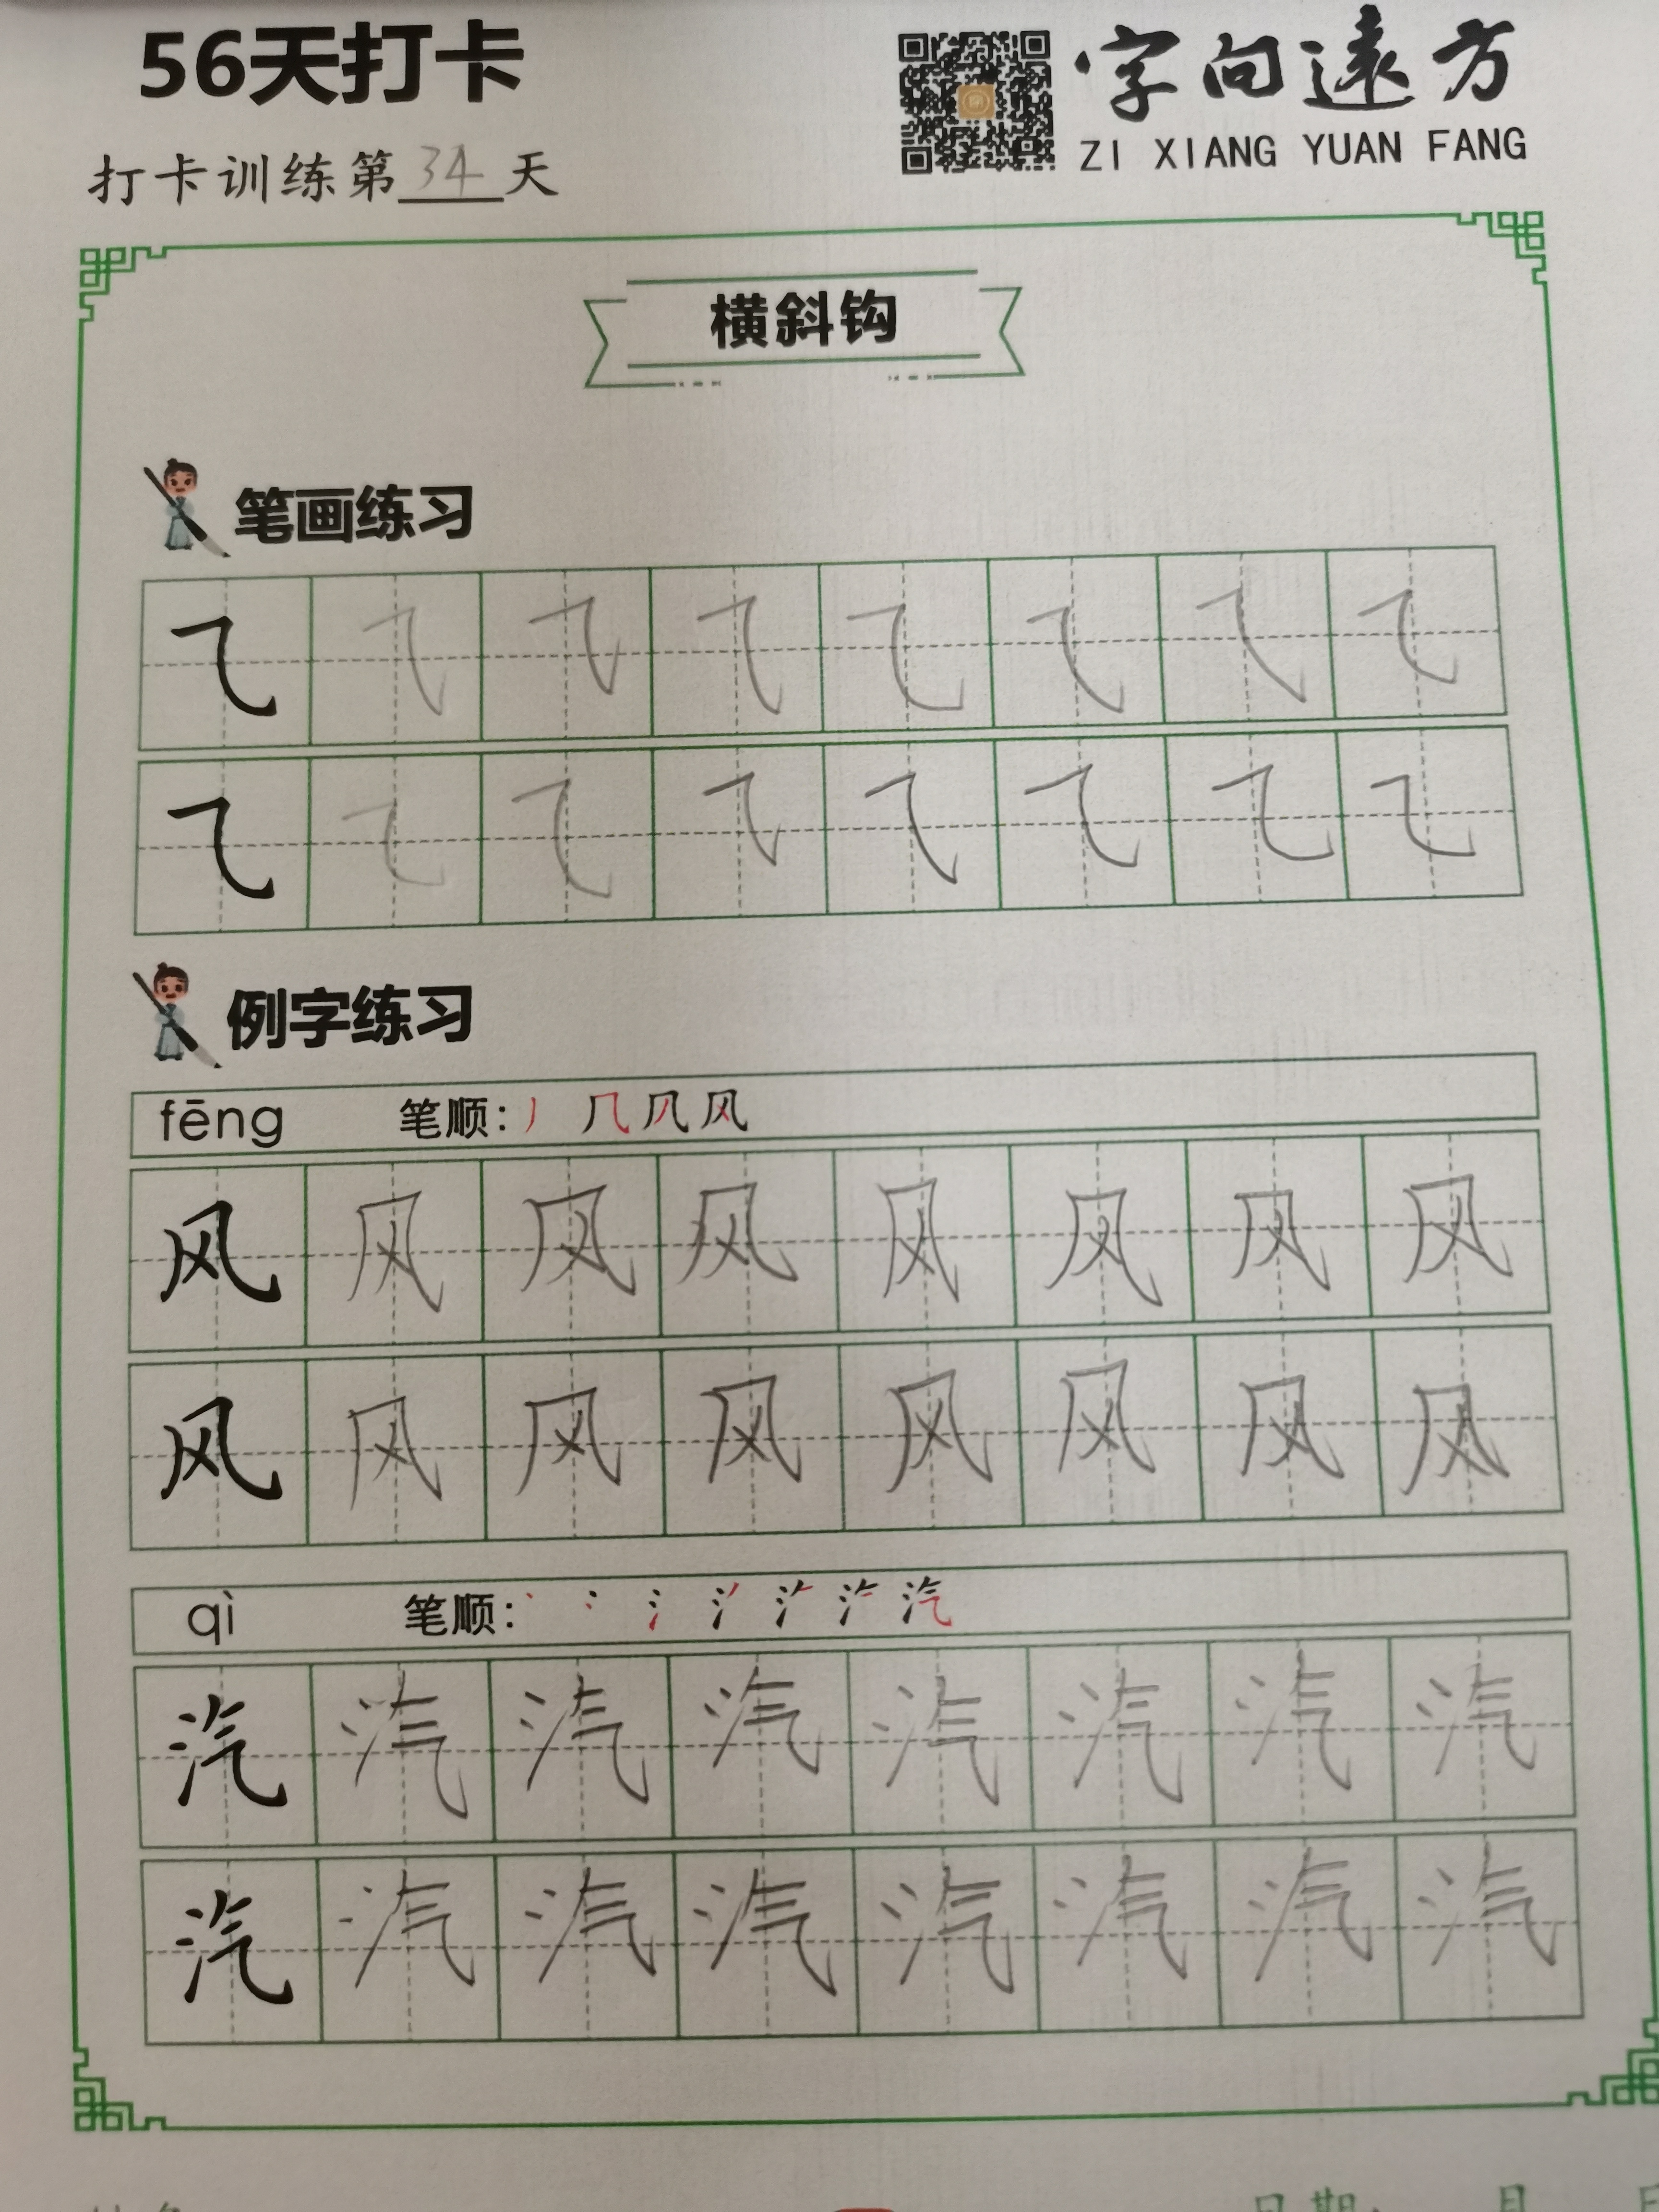 56天打卡
字向遠方
ZI XIANG YUAN FANG
打卡训练第34天
横斜钩
笔画练习
㇈ ㇈ ㇈ ㇈ ㇈ ㇈ ㇈ ㇈
㇈ ㇈ ㇈ ㇈ ㇈ ㇈ ㇈ ㇈
例字练习
fēng 笔顺:
风 风 风 风 风 风 风 风
风 风 风 风 风 风 风 风
qì 笔顺:
汽 汽 汽 汽 汽 汽 汽 汽
汽 汽 汽 汽 汽 汽 汽 汽
日期: 月